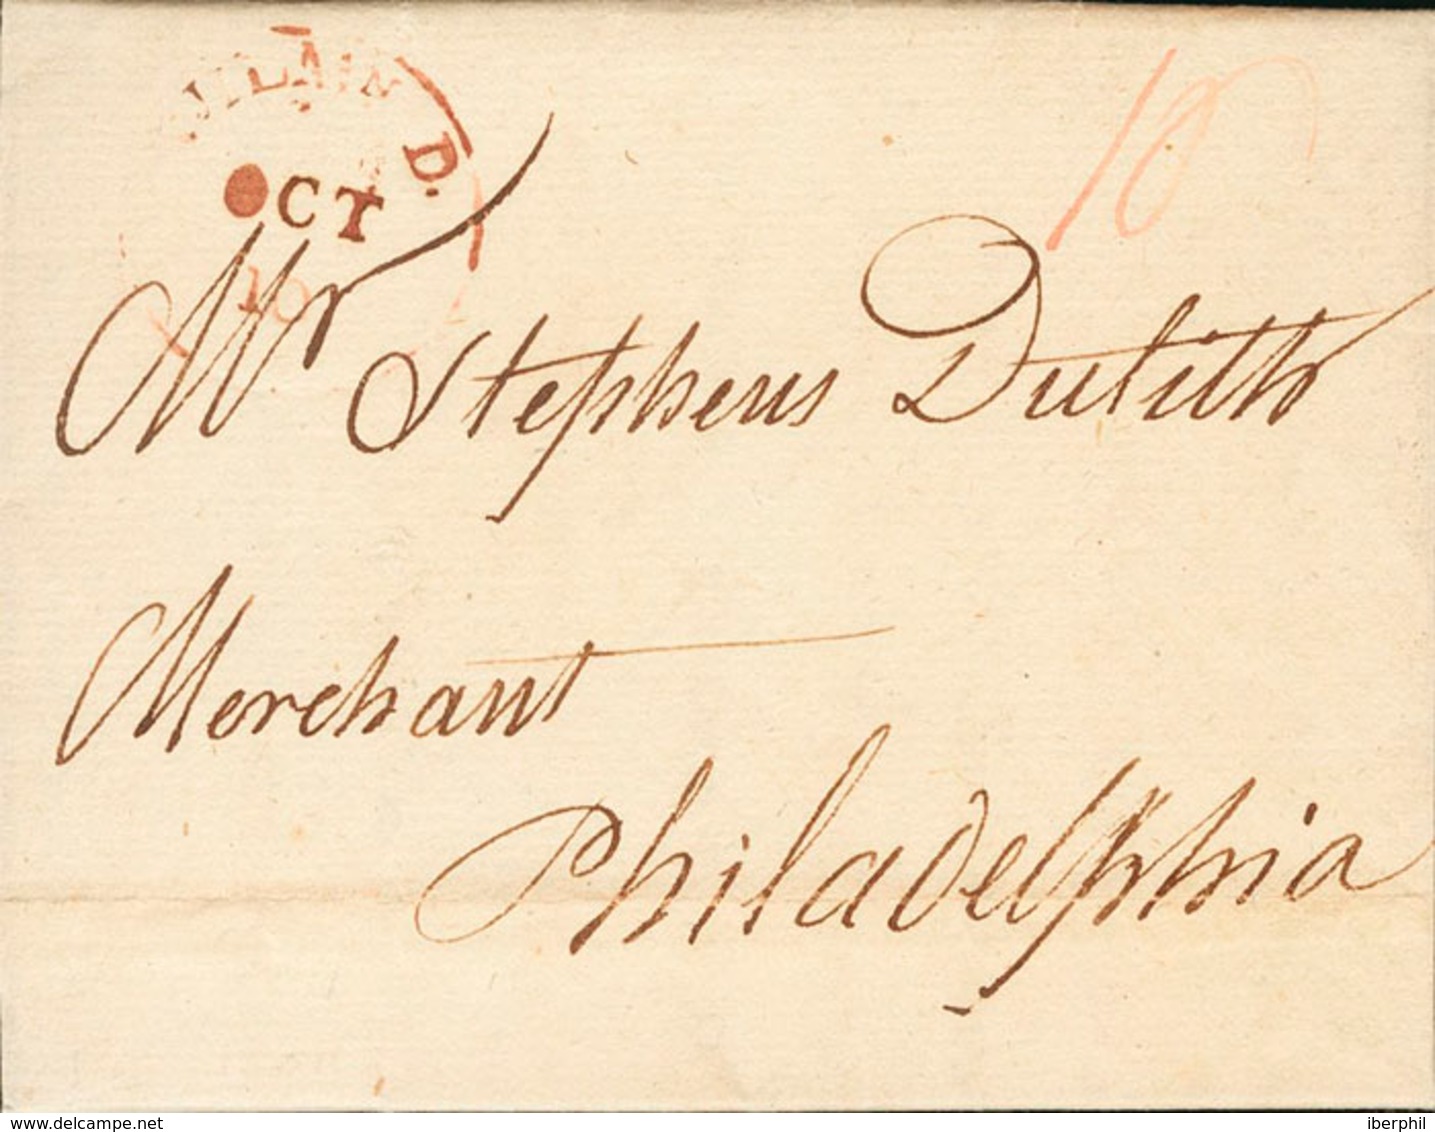 D.
OCT
10
10
Mr Stephens Dutilth
Merchant
Philadelphia
www.delcampe.net
iberphil